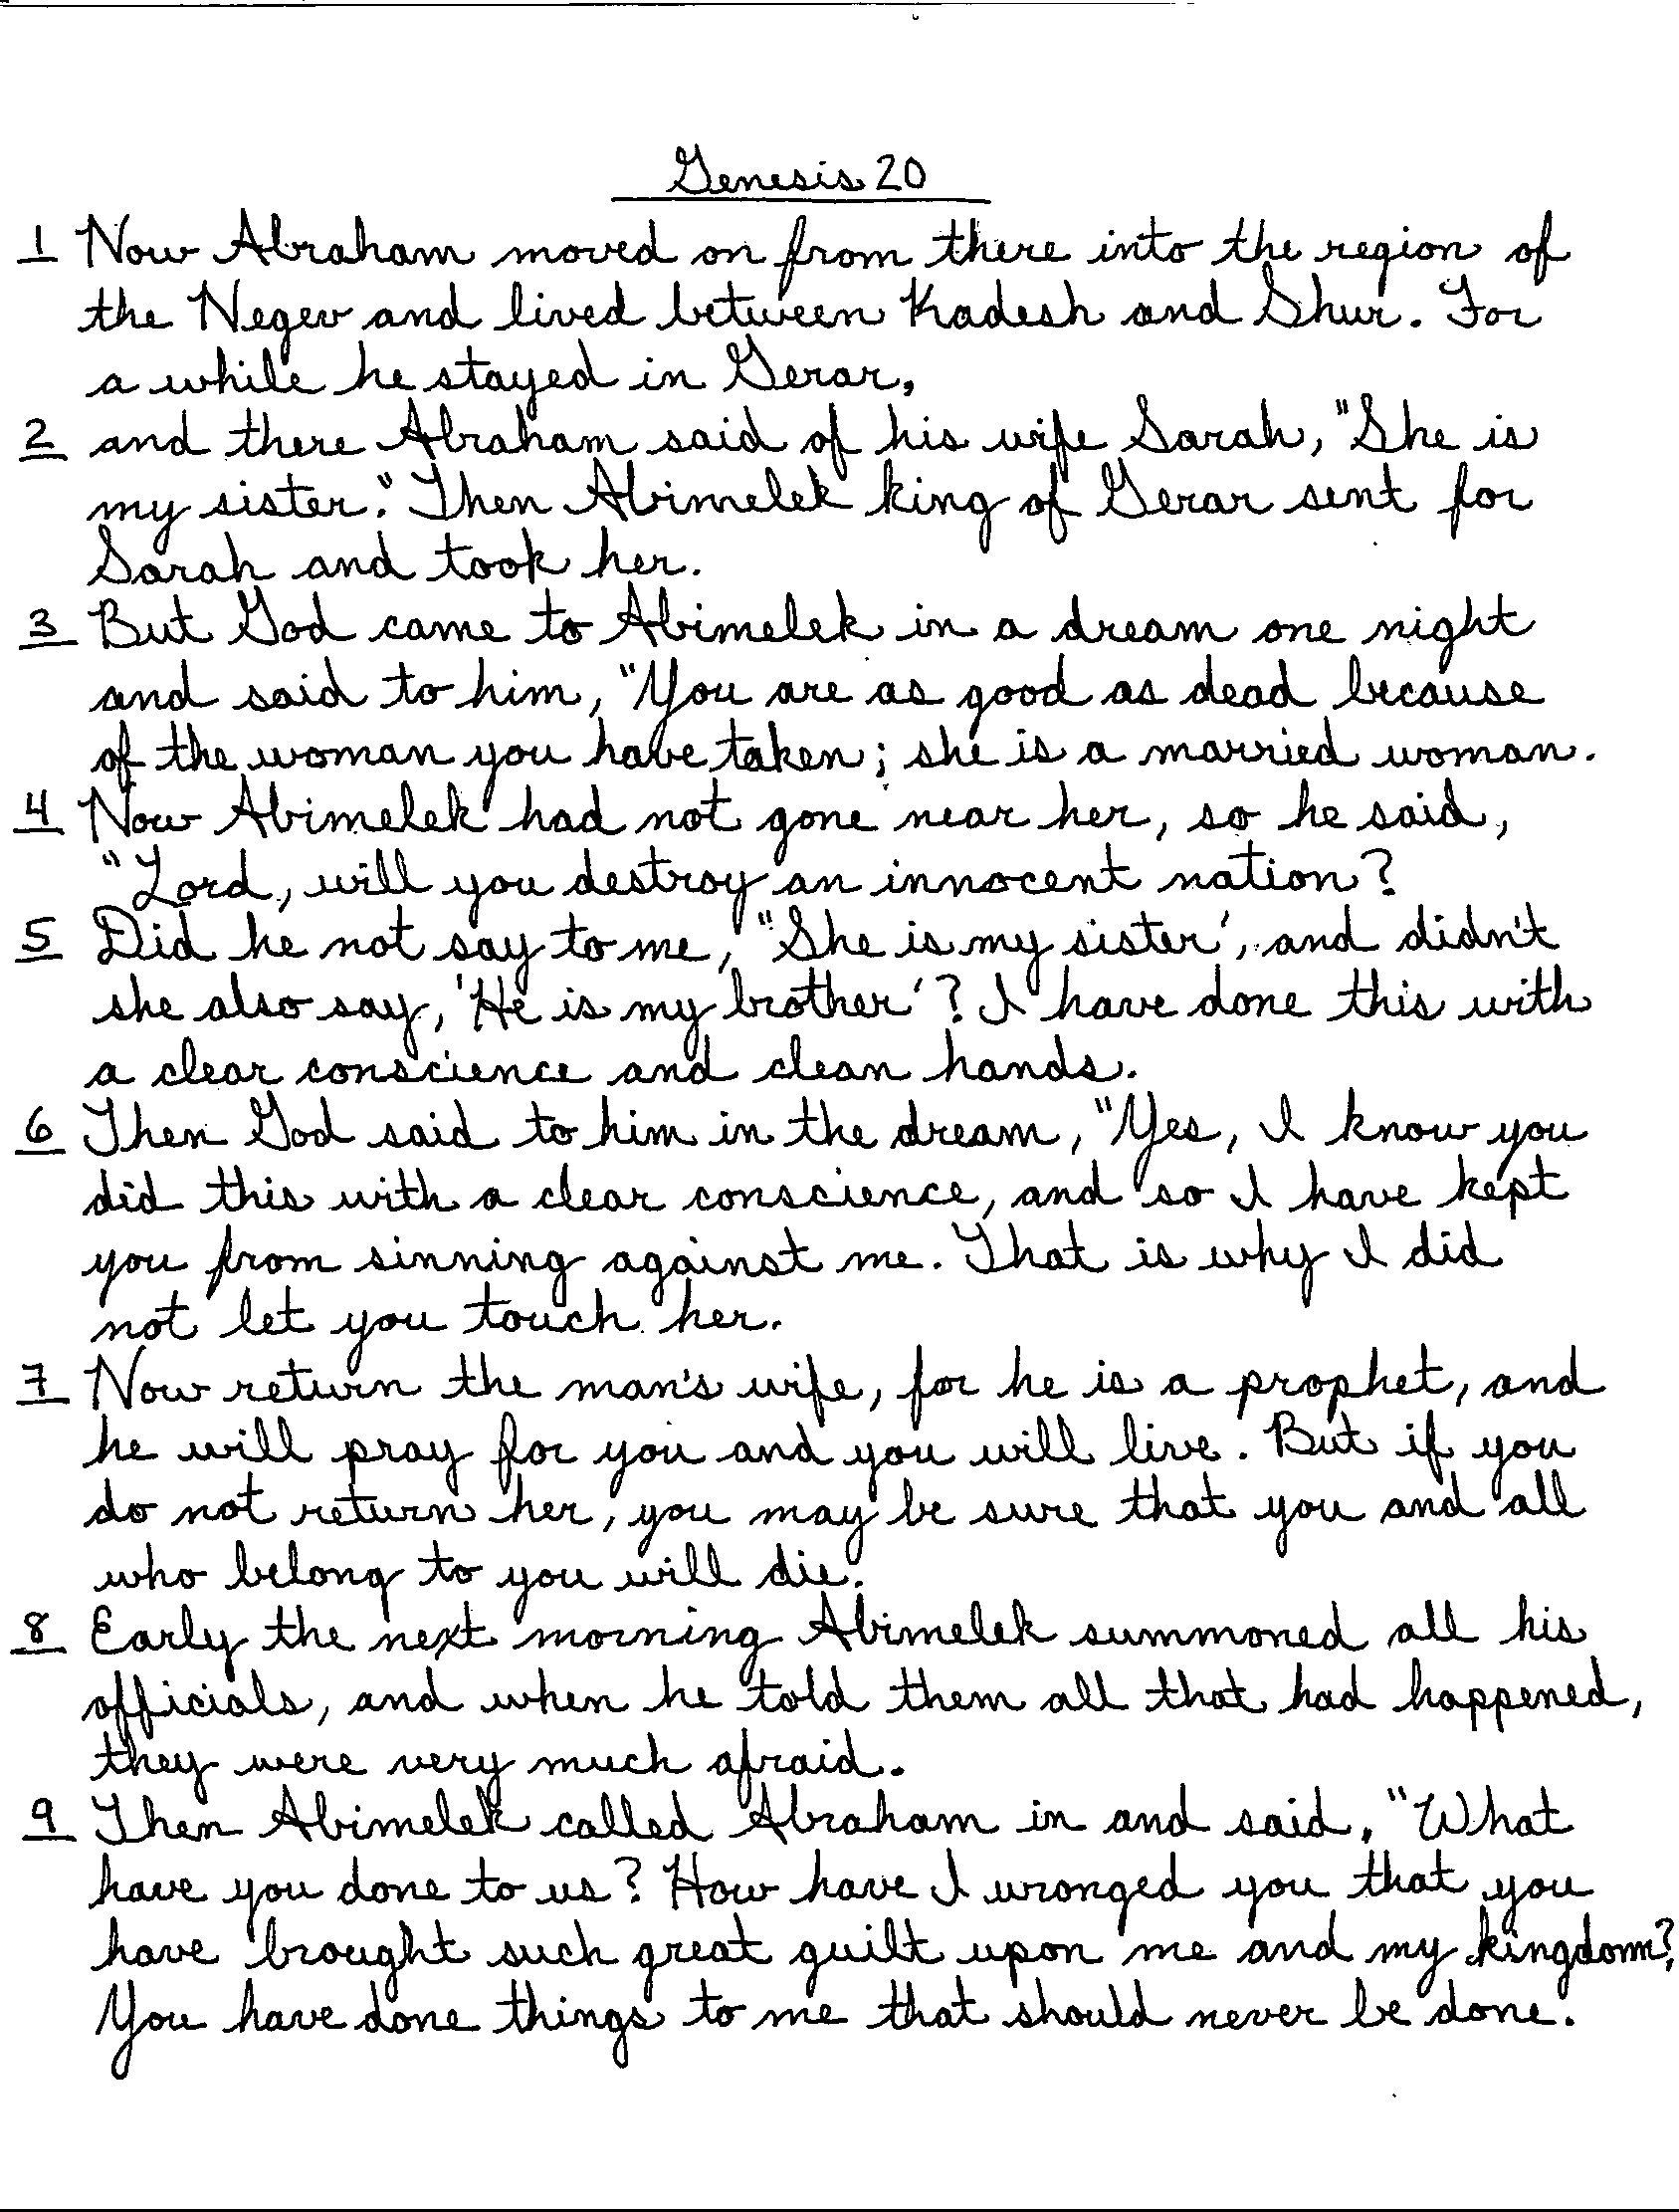 Genesis 20
1 Now Abraham moved on from there into the region of
the Negev and lived between Kadesh and Shur. For
a while he stayed in Gerar,
2 and there Abraham said of his wife Sarah, "She is
my sister." Then Abimelek king of Gerar sent for
Sarah and took her.
3 But God came to Abimelek in a dream one night
and said to him, "You are as good as dead because
of the woman you have taken; she is a married woman.
4 Now Abimelek had not gone near her, so he said,
"Lord, will you destroy an innocent nation?
5 Did he not say to me, "She is my sister', and didn't
she also say, 'He is my brother'? I have done this with
a clear conscience and clean hands.
6 Then God said to him in the dream, "Yes, I know you
did this with a clear conscience, and so I have kept
you from sinning against me. That is why I did
not let you touch her.
7 Now return the man's wife, for he is a prophet, and
he will pray for you and you will live. But if you
do not return her, you may be sure that you and all
who belong to you will die.
8 Early the next morning Abimelek summoned all his
officials, and when he told them all that had happened,
they were very much afraid.
9 Then Abimelek called Abraham in and said, "What
have you done to us? How have I wronged you that you
have brought such great guilt upon me and my kingdom?
You have done things to me that should never be done.